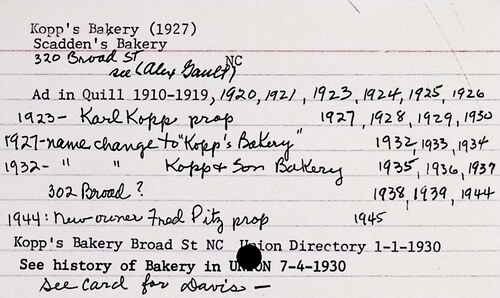 Kopp's Bakery (1927)
Scadden's Bakery
320 Broad St NC
see (Alex Gault)
Ad in Quill 1910-1919, 1920, 1921, 1923, 1924, 1925, 1926
1923- Karl Kopp prop 1927, 1928, 1929, 1930
1927-name change to "Kopp's Bakery" 1932, 1933, 1934
1932- " " Kopp & Son Bakery 1935, 1936, 1937
302 Broad? 1938, 1939, 1944
1944: new owner Fred Pitz prop 1945
Kopp's Bakery Broad St NC Union Directory 1-1-1930
See history of Bakery in UNION 7-4-1930
See card for Davis-